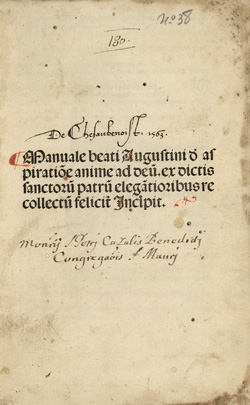 No. 38
180.
De Chesaubenoist. 1563.
Manuale beati Augustini d̄ as
piratiōe anime ad deū. ex dictis
sanctorū patrū elegātioribus re
collectū feliciť Incipit.
Monrij S. Petri Cazalis Benedicti
Congregaōis S. Mauri